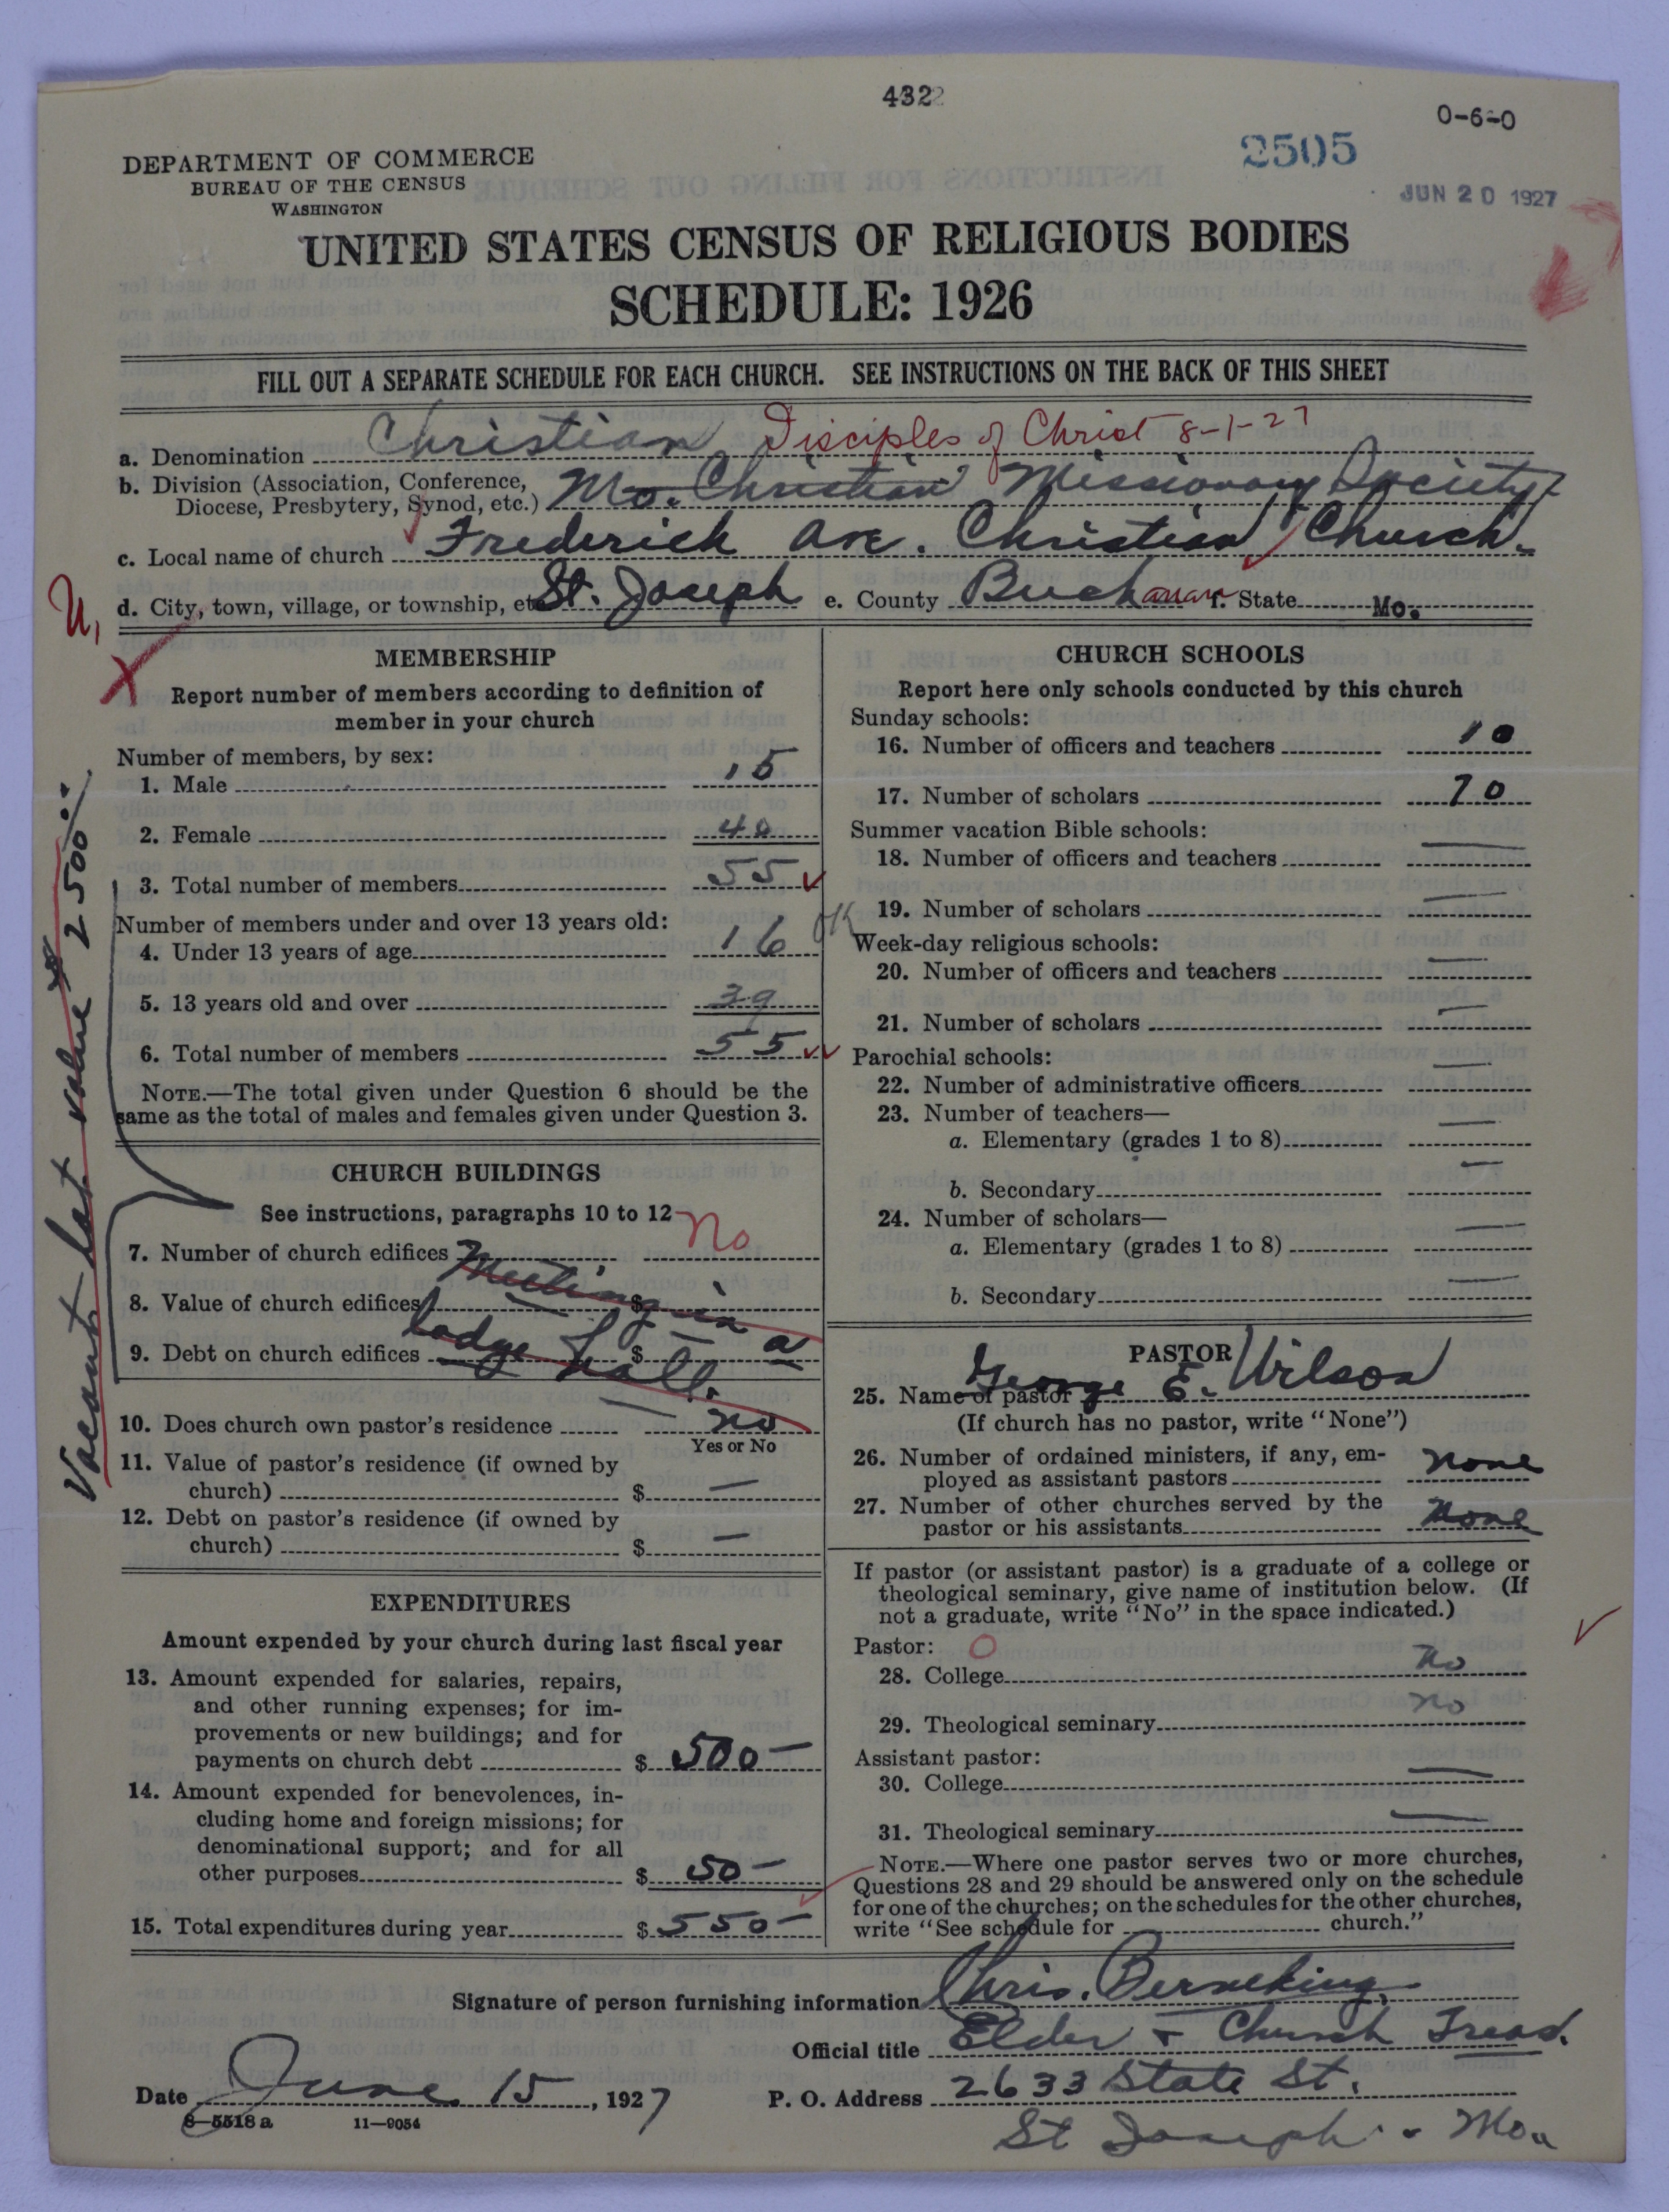 4322
0-6-0
2505
JUN 20 1927
DEPARTMENT OF COMMERCE
BUREAU OF THE CENSUS
WASHINGTON
UNITED STATES CENSUS OF RELIGIOUS BODIES
SCHEDULE: 1926
FILL OUT A SEPARATE SCHEDULE FOR EACH CHURCH. SEE INSTRUCTIONS ON THE BACK OF THIS SHEET
a. Denomination Christian Disciples of Christ 8-1-27
b. Division (Association, Conference,
Diocese, Presbytery, Synod, etc.) Mo. Christian Missionary Society
c. Local name of church Frederick Ave. Christian Church
d. City, town, village, or township, etc. St. Joseph e. County Buchanan f. State Mo.
U,
X
Vacant lot value $2500
MEMBERSHIP
Report number of members according to definition of
member in your church
Number of members, by sex:
1. Male 15
2. Female 40
3. Total number of members 55
Number of members under and over 13 years old:
4. Under 13 years of age 16 OK
5. 13 years old and over 39
6. Total number of members 55
NOTE.—The total given under Question 6 should be the
same as the total of males and females given under Question 3.
CHURCH BUILDINGS
See instructions, paragraphs 10 to 12
7. Number of church edifices No
Meeting in a
8. Value of church edifices $
lodge hall.
9. Debt on church edifices $
10. Does church own pastor's residence no
Yes or No
11. Value of pastor's residence (if owned by
church) $ —
12. Debt on pastor's residence (if owned by
church) $ —
EXPENDITURES
Amount expended by your church during last fiscal year
13. Amount expended for salaries, repairs,
and other running expenses; for im-
provements or new buildings; and for
payments on church debt $ 500—
14. Amount expended for benevolences, in-
cluding home and foreign missions; for
denominational support; and for all
other purposes $ 50—
15. Total expenditures during year $ 550—
CHURCH SCHOOLS
Report here only schools conducted by this church
Sunday schools:
16. Number of officers and teachers 10
17. Number of scholars 70
Summer vacation Bible schools:
18. Number of officers and teachers —
19. Number of scholars —
Week-day religious schools:
20. Number of officers and teachers —
21. Number of scholars —
Parochial schools:
22. Number of administrative officers —
23. Number of teachers—
a. Elementary (grades 1 to 8) —
b. Secondary —
24. Number of scholars—
a. Elementary (grades 1 to 8) —
b. Secondary —
PASTOR
25. Name of pastor George E. Wilson
(If church has no pastor, write "None")
26. Number of ordained ministers, if any, em-
ployed as assistant pastors none
27. Number of other churches served by the
pastor or his assistants none
If pastor (or assistant pastor) is a graduate of a college or
theological seminary, give name of institution below. (If
not a graduate, write "No" in the space indicated.)
Pastor: O
28. College no
29. Theological seminary no
Assistant pastor:
30. College —
31. Theological seminary —
NOTE.—Where one pastor serves two or more churches,
Questions 28 and 29 should be answered only on the schedule
for one of the churches; on the schedules for the other churches,
write "See schedule for church."
Signature of person furnishing information Chris. Berneking
Official title Elder + Church Treas.
Date June 15, 1927 P. O. Address 2633 State St.
8—5518 a 11—9054
St Joseph - Mo.